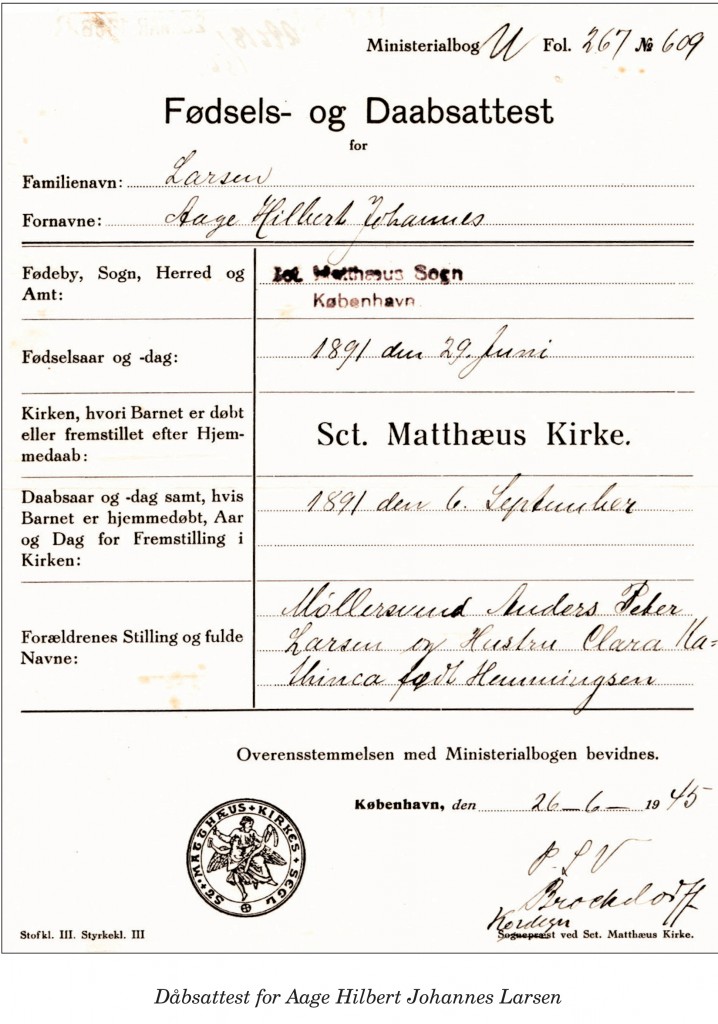 Ministerialbog U Fol. 267 № 609
Fødsels- og Daabsattest
for
Familienavn: Larsen
Fornavne: Aage Hilbert Johannes
Fødeby, Sogn, Herred og
Amt:
Sct. Matthæus Sogn
København
Fødselsaar og -dag: 1891 den 29. Juni
Kirken, hvori Barnet er døbt
eller fremstillet efter Hjem-
medaab:
Sct. Matthæus Kirke.
Daabsaar og -dag samt, hvis
Barnet er hjemmedøbt, Aar
og Dag for Fremstilling i
Kirken:
1891 den 6. September
Forældrenes Stilling og fulde
Navne:
Møllersvend Anders Peter
Larsen og Hustru Clara Ka=
thinca født Henningsen
Overensstemmelsen med Ministerialbogen bevidnes.
København, den 26-6- 1945
ST. MATTHÆUS KIRKES SEGL
P.S.V
Brockdorff
Kordegn
Sognepræst ved Sct. Matthæus Kirke.
Stofkl. III. Styrkekl. III
Dåbsattest for Aage Hilbert Johannes Larsen